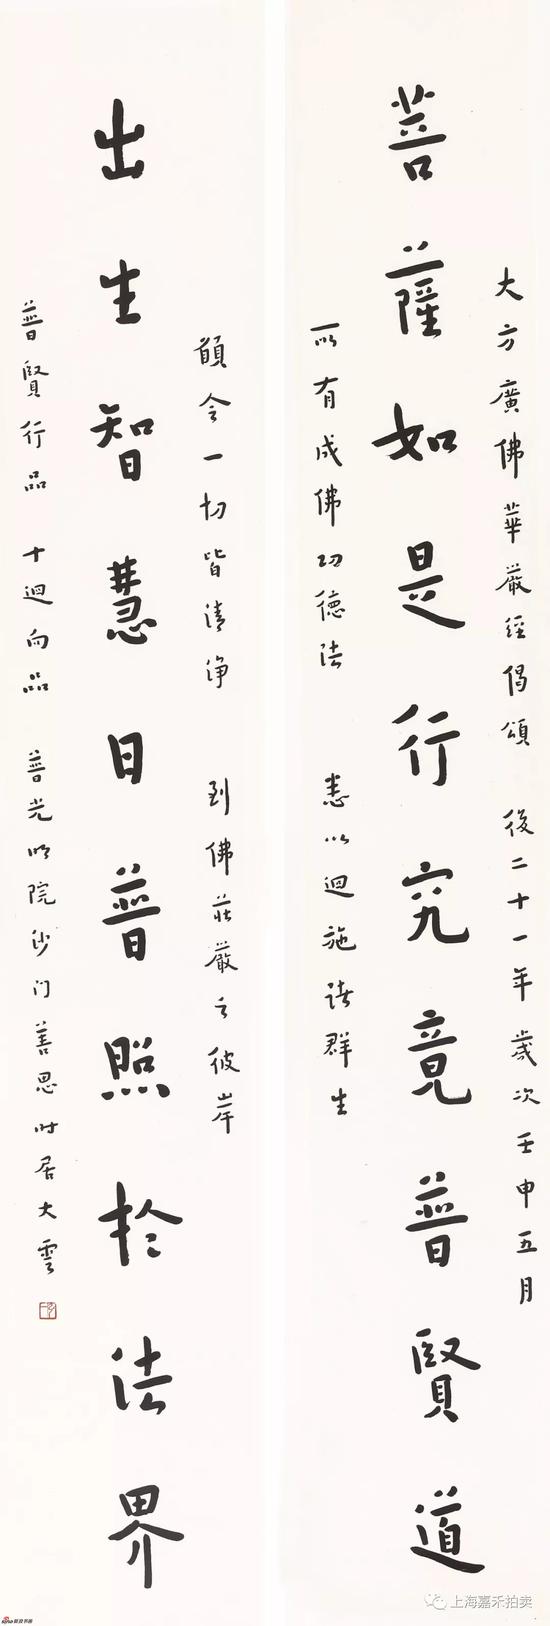 大方廣佛華嚴經偈頌 後二十一年歲次壬申五月
菩薩如是行究竟普賢道
所有成佛功德法 悉以迴施諸群生
願令一切皆清淨 到佛莊嚴之彼岸
出生智慧日普照於法界
普賢行品 十迴向品 普光明院沙门善思時居大雲
上海嘉禾拍卖
sina 新浪书画